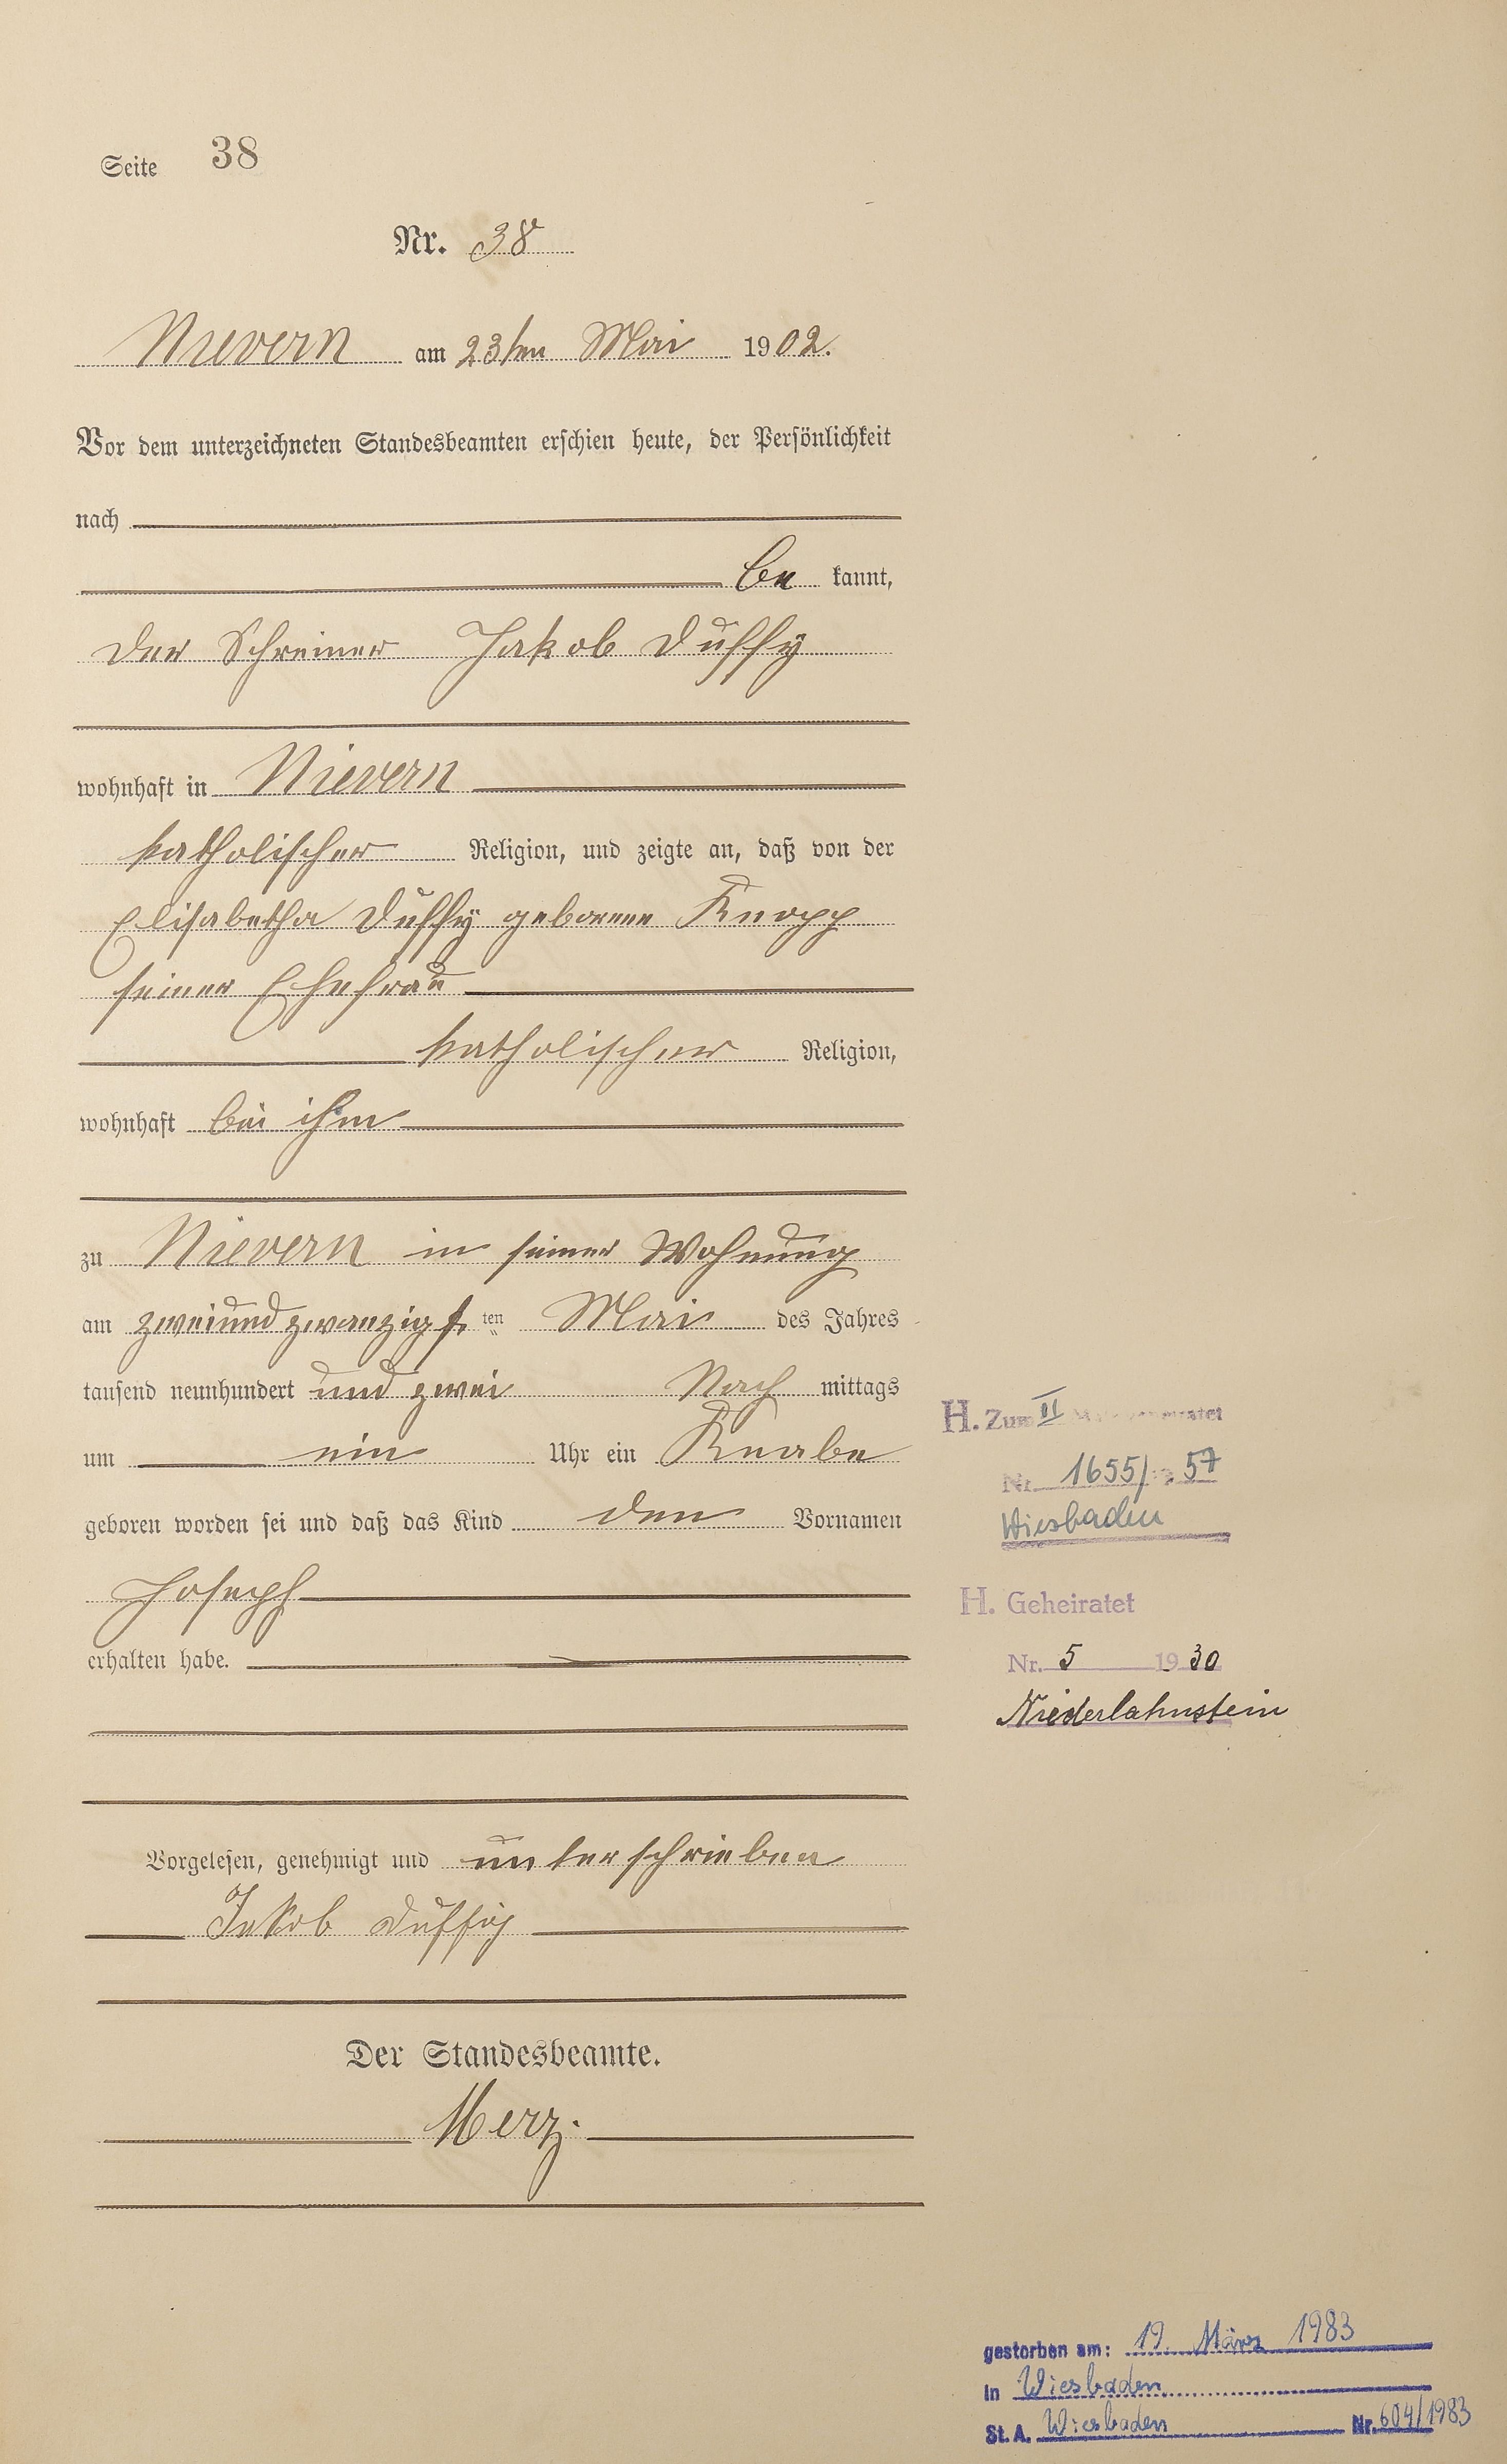 Seite 38
Nr. 38
Nievern am 23ten Mai 1902.
Vor dem unterzeichneten Standesbeamten erschien heute, der Persönlichkeit
nach
be kannt,
der Schreiner Jakob Duffy
wohnhaft in Nievern
katholischer Religion, und zeigte an, daß von der
Elisabetha Duffy geborene Knopp
seiner Ehefrau
katholischer Religion,
wohnhaft bei ihm
zu Nievern in seiner Wohnung
am zweiundzwanzigs ten Mai des Jahres
tausend neunhundert und zwei Nach mittags
um ein Uhr ein Knabe
geboren worden sei und daß das Kind den Vornamen
Joseph
erhalten habe.
Vorgelesen, genehmigt und unterschrieben
Jakob Duffy
Der Standesbeamte.
Merz.
H. Zum II
Nr. 1655/ 57
Wiesbaden
H. Geheiratet
Nr. 5 1930
Niederlahnstein
gestorben am: 19. März 1983
in Wiesbaden
St. A. Wiesbaden Nr. 604/1983